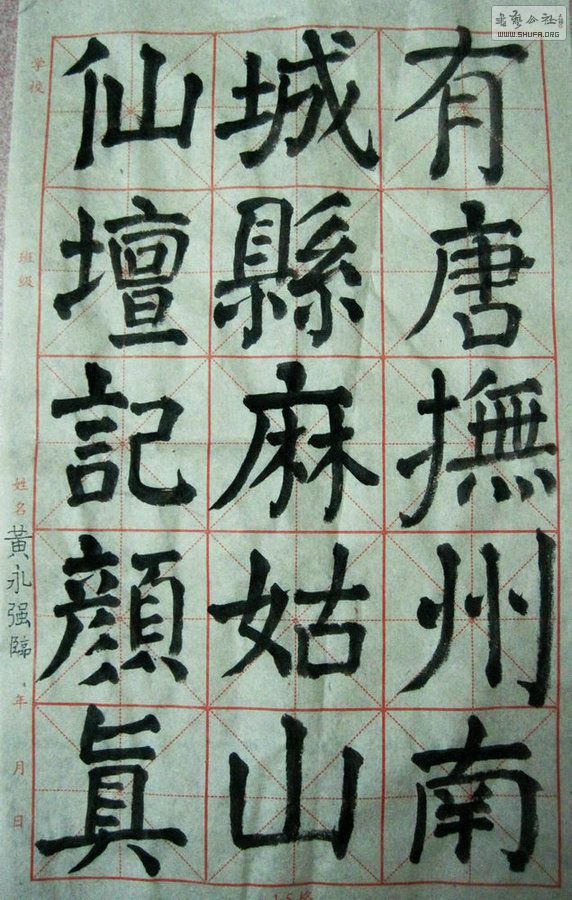 有唐撫州南
城縣麻姑山
仙壇記顏眞
黃永强臨
学校
班级
姓名
年
月
日
书艺公社
WWW.SHUFA.ORG